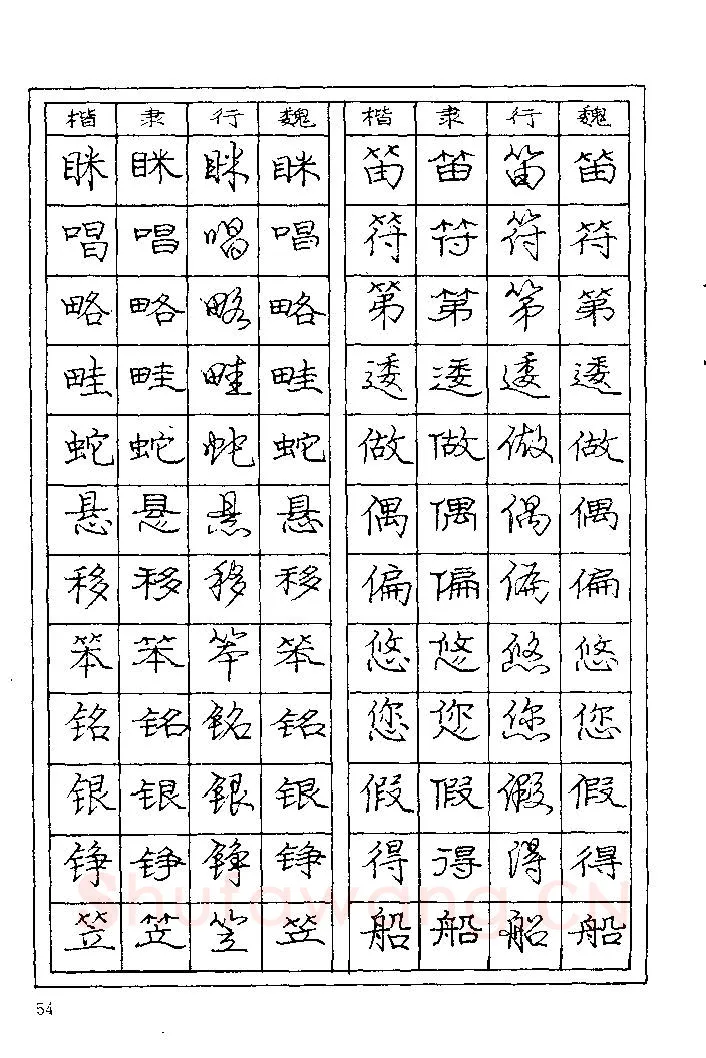 楷 隶 行 魏 楷 隶 行 魏
眯 眯 眯 眯 笛 笛 笛 笛
唱 唱 唱 唱 符 符 符 符
略 略 略 略 第 第 第 第
畦 畦 畦 畦 逶 逶 逶 逶
蛇 蛇 蛇 蛇 做 做 做 做
悬 悬 悬 悬 偶 偶 偶 偶
移 移 移 移 偏 偏 偏 偏
笨 笨 笨 笨 悠 悠 悠 悠
铭 铭 铭 铭 您 您 您 您
银 银 银 银 假 假 假 假
铮 铮 铮 铮 得 得 得 得
笠 笠 笠 笠 船 船 船 船
Shufawang.CN
54